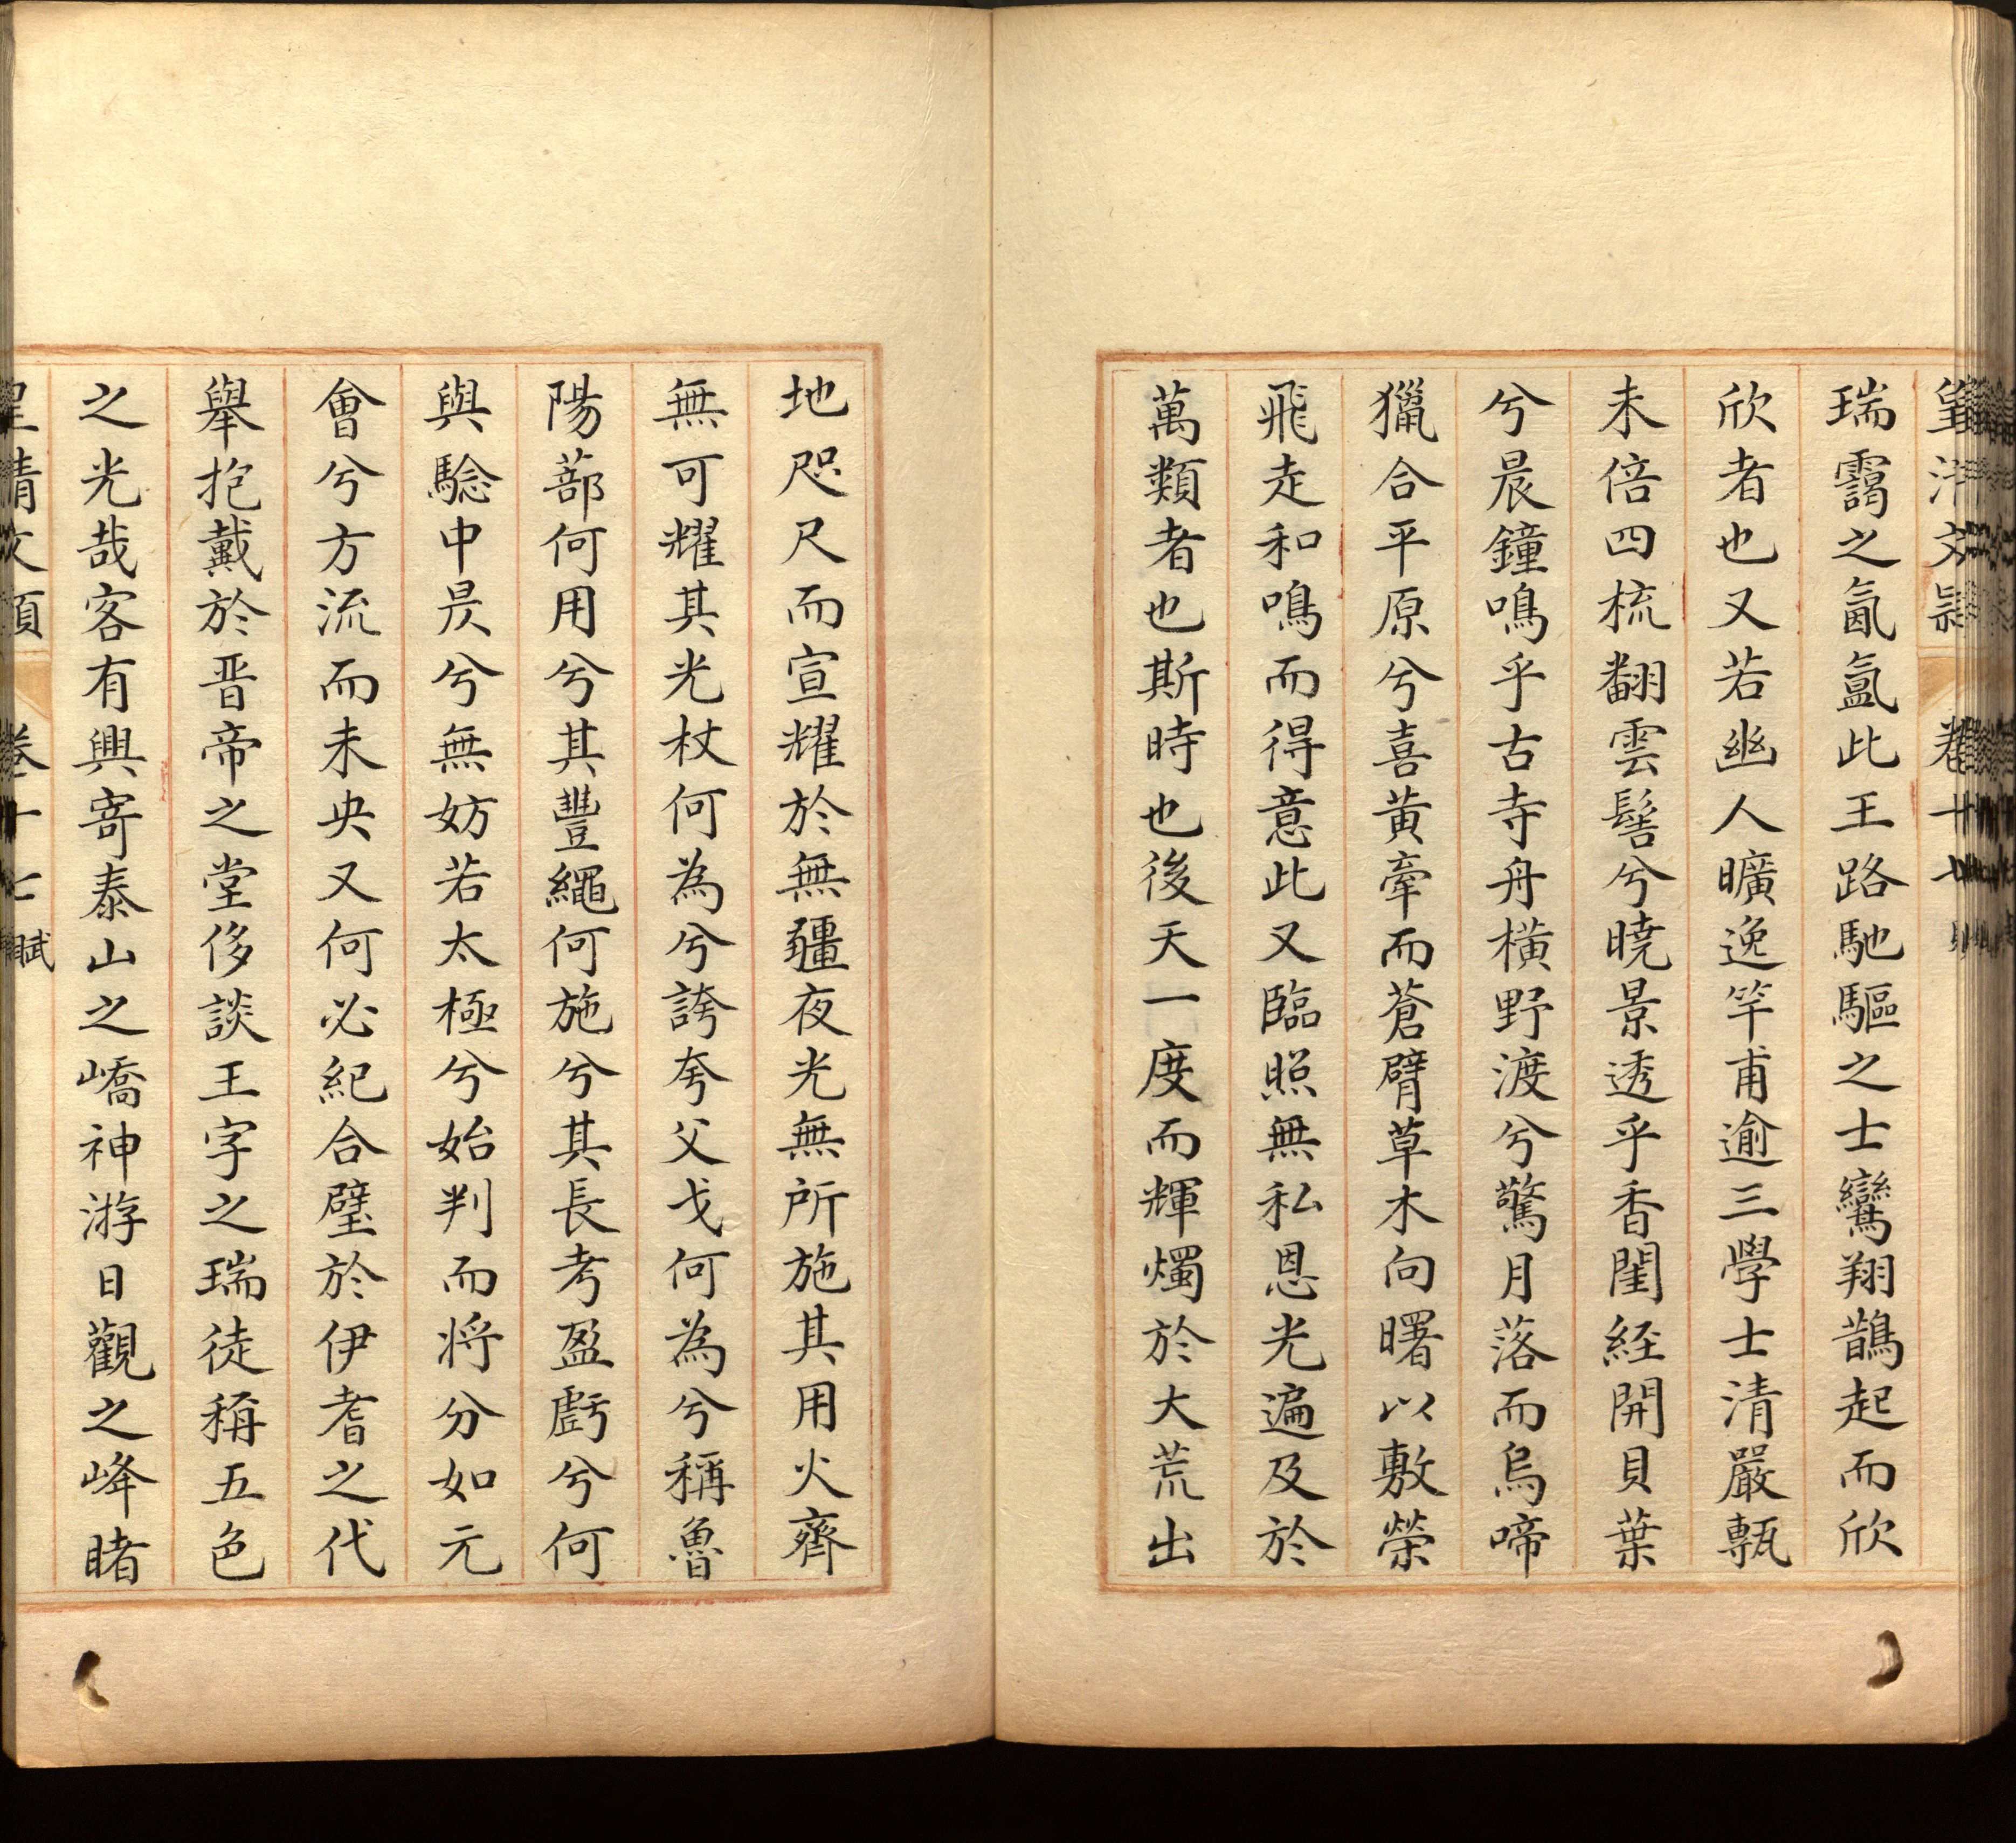 瑞靄之氤氳此王路馳驅之士鸞翔鵲起而欣
欣者也又若幽人曠逸竿甫逾三學士清嚴甎
未倍四梳翻雲髻兮曉景透乎香閨経開貝葉
兮晨鐘鳴乎古寺舟橫野渡兮驚月落而烏啼
獵合平原兮喜黃牽而蒼臂草木向曙以敷榮
飛走和鳴而得意此又臨照無私恩光遍及於
萬類者也斯時也後天一度而輝燭於大荒出
地咫尺而宣耀於無疆夜光無所施其用火齊
無可耀其光杖何為兮誇夸父戈何為兮稱魯
陽蔀何用兮其豐繩何施兮其長考盈虧兮何
與驗中昃兮無妨若太極兮始判而将分如元
會兮方流而未央又何必紀合璧於伊耆之代
舉抱戴於晋帝之堂侈談王字之瑞徒稱五色
之光哉客有興寄泰山之嶠神游日觀之峰睹
皇清文穎 卷十七 賦